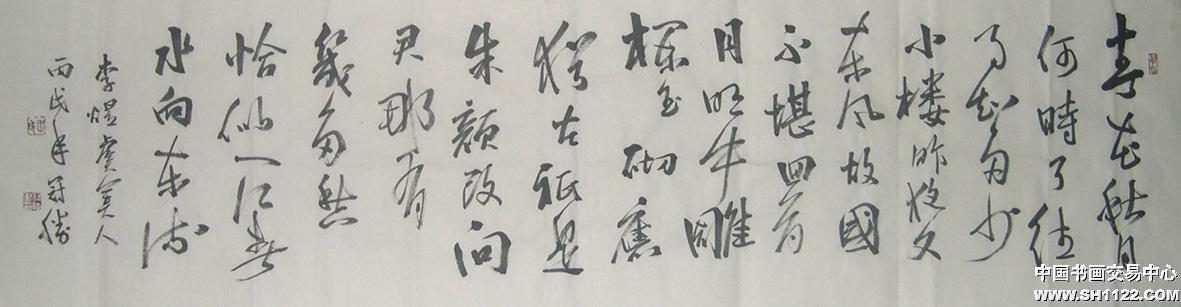 春花秋月
何時了往
事知多少
小楼昨夜又
东风故國
不堪回首
月明中雕
欄玉砌應
猶在祇是
朱颜改问
君能有
幾多愁
恰似一江春
水向东流
李煜虞美人
丙戌年
中国书画交易中心
www.SH1122.com